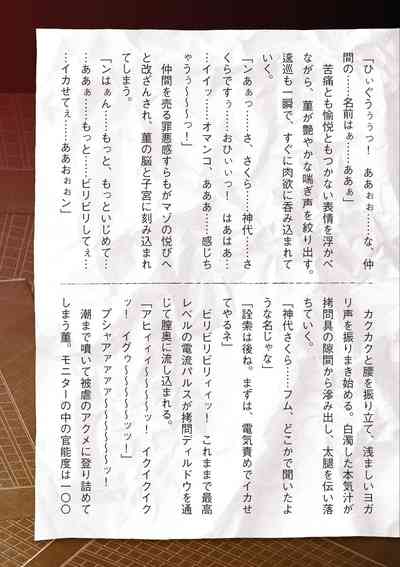 「ひぃぐうぅぅっ！　ああぉぉ……な、仲
間の……名前はぁ……あああぁ」
　苦痛とも愉悦ともつかない表情を浮かべ
ながら、菫が艶やかな喘ぎ声を絞り出す。
逡巡も一瞬で、すぐに肉欲に呑み込まれて
いく。
「ンあぁっ……さ、さくら……神代……さ
くらですぅ……おひぃぃっ！　はあはあ…
…イイッ……オマンコ、あああ……感じち
ゃうぅ～～～っ！」
　仲間を売る罪悪感すらもがマゾの悦びへ
と改ざんされ、菫の脳と子宮に刻み込まれ
てしまう。
「ンはぁん……もっと、もっといじめて…
…ああぁ……もっと……ビリビリしてぇ…
…イカせてぇ……ああおぉぉン」
　カクカクと腰を振り立て、浅ましいヨガ
リ声を振りまき始める。白濁した本気汁が
拷問具の隙間から滲み出し、太腿を伝い落
ちていく。
「神代さくら……フム、どこかで聞いたよ
うな名じゃな」
「詮索は後ね。まずは、電気責めでイカせ
てやるネ」
　ビリビリビリィィッ！　これまでで最高
レベルの電流パルスが拷問ディルドウを通
じて膣奥に流し込まれる。
「アヒィィィ～～～～ッ！　イクイクイク
ッ！　イグゥ～～～～～～ッッ！」
　プシャアァァァァ～～～～～～～ッ！
　潮まで噴いて被虐のアクメに登り詰めて
しまう菫。モニターの中の官能度は一〇〇